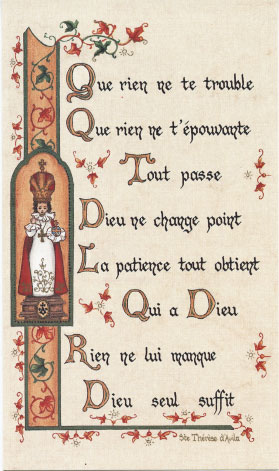 Que rien ne te trouble
Que rien ne t'épouvante
Tout passe
Dieu ne change point
La patience tout obtient
Qui a Dieu
Rien ne lui manque
Dieu seul suffit
Ste Thérèse d'Avila